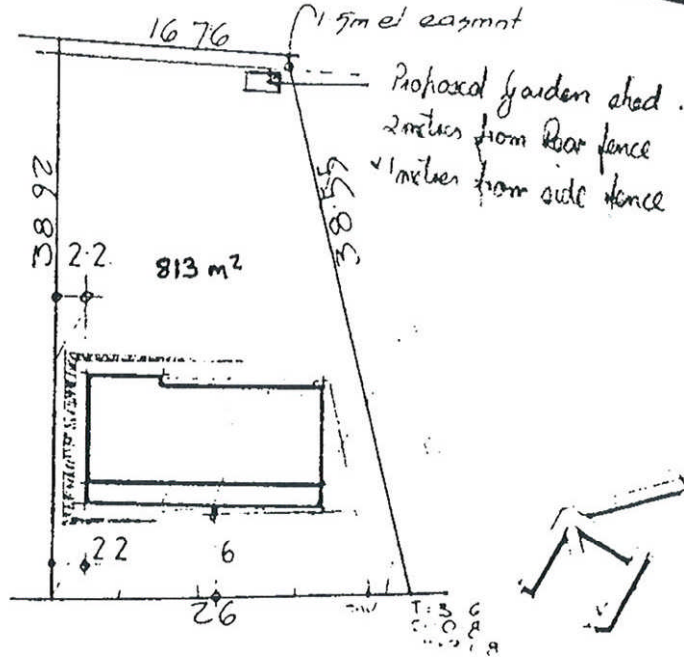 1.5m el easmnt
16 76
Proposed garden shed.
2 metres from Rear fence
1 metres from side fence
38.92
38.55
2.2
813 m²
2 2
6
26